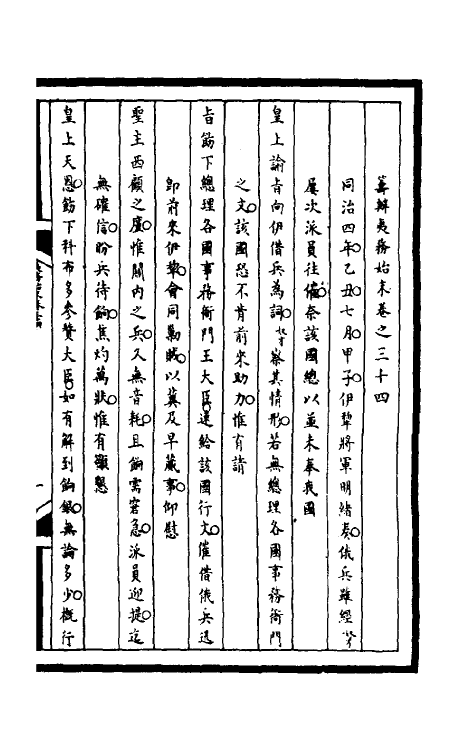 籌辦夷務始末卷之三十四
同治四年乙丑七月甲子伊犂將軍明緒奏俄兵雖經奴才
屢次派員往催奈該國總以並未奉我國
皇上諭旨向伊借兵為詞奴才察其情形若無總理各國事務衙門
之文該國恐不肯前來助力惟有請
旨飭下總理各國事務衙門王大臣速給該國行文催借俄兵迅
即前來伊犂會同勦賊以冀及早蕆事仰慰
聖主西顧之廑惟關內之兵久無音耗且餉需窘急派員迎提迄
無確信盼兵待餉焦灼萬狀惟有籲懇
皇上天恩飭下科布多參贊大臣如有解到餉銀無論多少概行